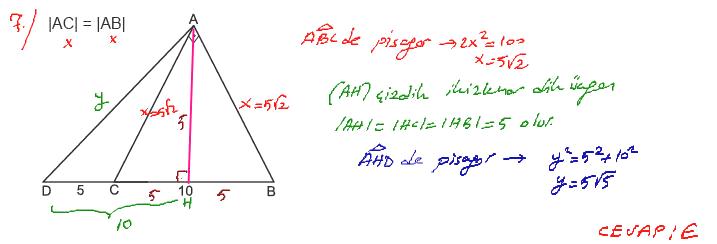 7.) |AC| = |AB|
x x
A
y
x=5√2
5
x=5√2
D 5 C 5 10 5 B
H
10
ABC de pisagor → 2x²=100
x=5√2
(AH) çizdik ikizkenar dik üçgen
|AH|=|HC|=|HB|=5 olur.
AHD de pisagor → y²=5²+10²
y=5√5
CEVAP:E